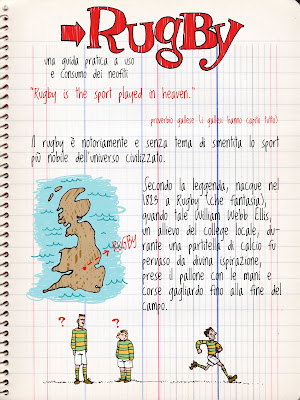 RugBy
una guida pratica a uso
e consumo dei neofiti
"Rugby is the sport played in heaven."
proverbio gallese (i gallesi hanno capito tutto)
Il rugby è notoriamente e senza tema di smentita lo sport
più nobile dell'universo civilizzato.
Secondo la leggenda, nacque nel
1823 a Rugby (che fantasia),
quando tale William Webb Ellis,
un allievo del college locale, du-
rante una partitella di calcio fu
pervaso da divina ispirazione,
prese il pallone con le mani e
corse gagliardo fino alla fine del
campo.
RUGBY
?
?